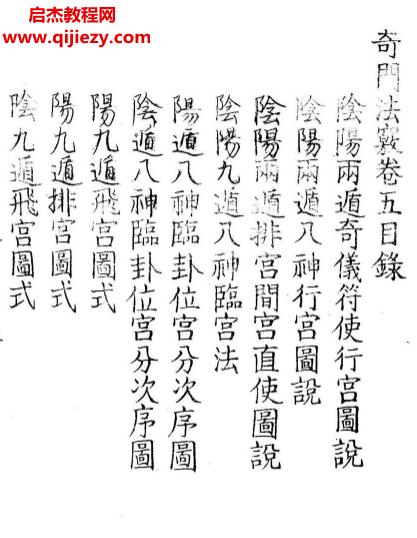 启杰教程网
www.qijiezy.com
奇門法竅卷五目錄
陰陽兩遁奇儀符使行宮圖說
陰陽兩遁八神行宮圖說
陰陽兩遁排宮間宮直使圖說
陰陽九遁八神臨宮法
陽遁八神臨卦位宮分次序圖
陰遁八神臨卦位宮分次序圖
陽九遁飛宮圖式
陽九遁排宮圖式
陰九遁飛宮圖式